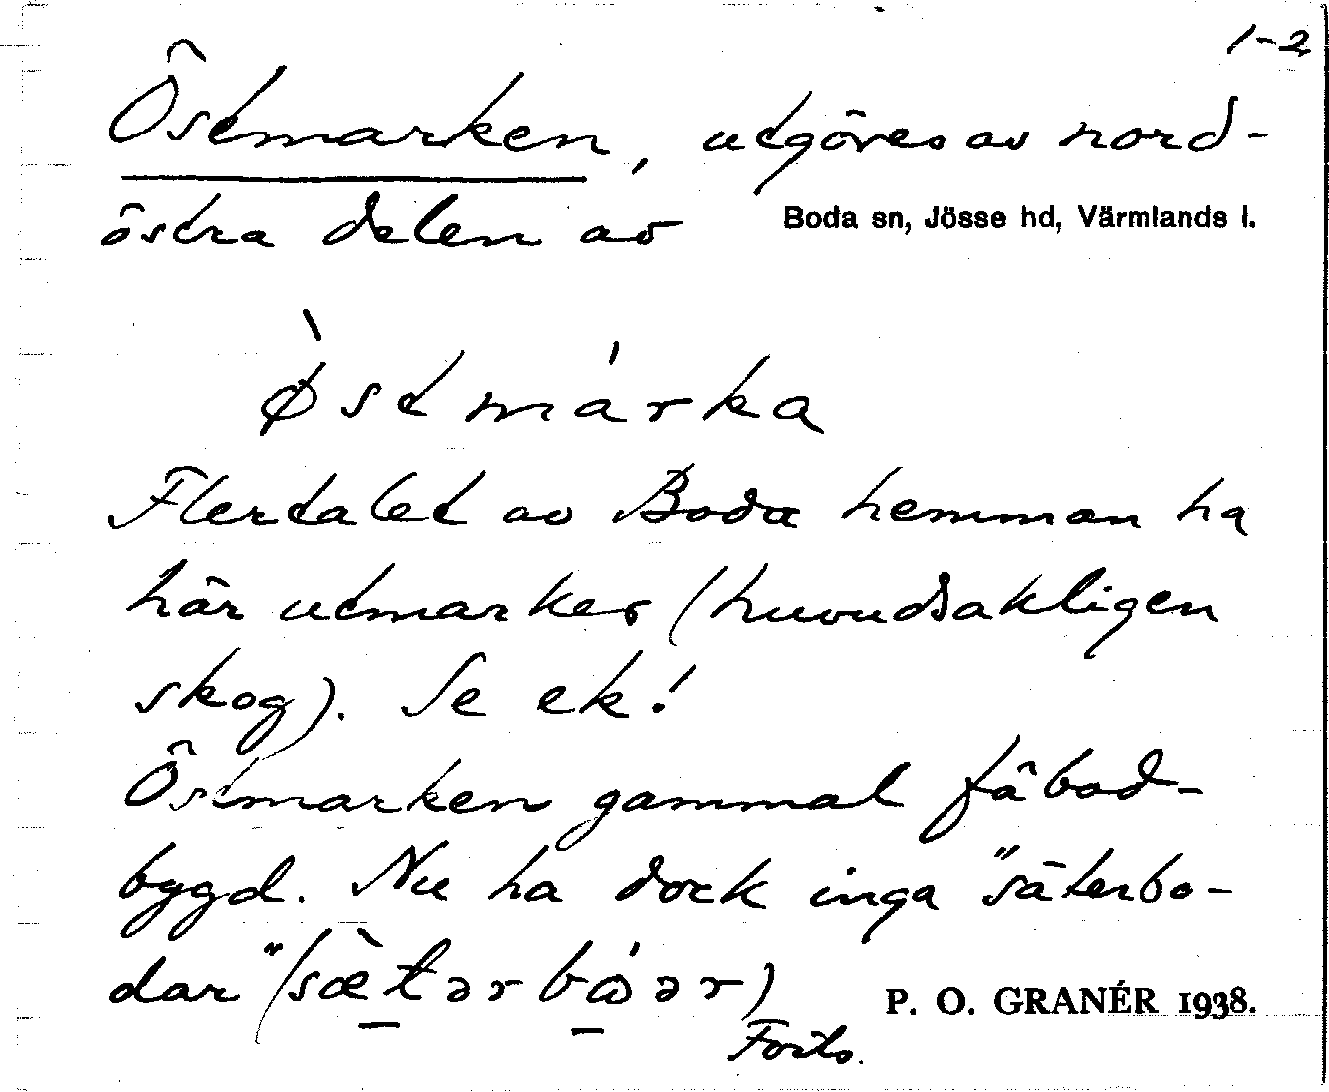 1-2
Östmarken, utgöres av nord-
östra delen av
Boda sn, Jösse hd, Värmlands l.
Ø̀stmárka
Flertalet av Boda hemman ha
här utmarker (huvudsakligen
skog). Se ek!
Östmarken gammal fäbod-
bygd. Nu ha dock inga "säterbo-
dar" (sæ̀tərbɷ́ər)
P. O. GRANÉR 1938.
Forts.